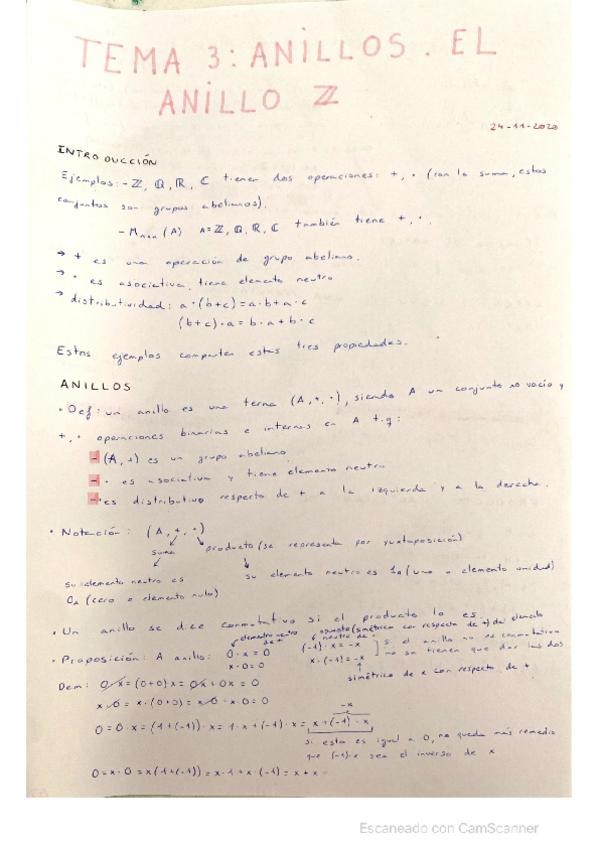 TEMA 3: ANILLOS. EL
ANILLO ℤ
24-11-2020
INTRODUCCIÓN
Ejemplos: - ℤ, ℚ, ℝ, ℂ tienen dos operaciones: +, · (con la suma, estos
conjuntos son grupos abelianos).
- Mnxn (A) A=ℤ, ℚ, ℝ, ℂ también tiene +, ·.
→ + es una operación de grupo abeliano.
→ · es asociativa, tiene elemento neutro
→ distributividad: a·(b+c)=a·b+a·c
(b+c)·a=b·a+b·c
Estos ejemplos comparten estas tres propiedades.
ANILLOS
· Def: un anillo es una terna (A,+,·), siendo A un conjunto no vacío y
+, · operaciones binarias e internas en A t.q:
- (A,+) es un grupo abeliano
- · es asociativa y tiene elemento neutro
- · es distributivo respecto de + a la izquierda y a la derecha.
· Notación: (A,+,·)
suma
producto (se representa por yuxtaposición)
su elemento neutro es
0A (cero o elemento nulo)
su elemento neutro es 1A (uno o elemento unidad)
· Un anillo se dice conmutativo si el producto lo es.
elemento neutro de +
opuesto (simétrico con respecto de +) del elemento neutro de ·
· Proposición: A anillo: 0·x=0
x·0=0
(-1)·x=-x
x·(-1)=-x
si el anillo no es conmutativo
no se tienen que dar las dos
simétrico de x con respecto de +
Dem: 0·x=(0+0)·x=0x+0x=0
x·0=x·(0+0)=x·0+x·0=0
-x
0=0·x=(1+(-1))·x=1·x+(-1)·x=x+(-1)·x
si esto es igual a 0, no queda más remedio
que (-1)·x sea el inverso de x
0=x·0=x(1+(-1))=x·1+x·(-1)=x+x·
Escaneado con CamScanner